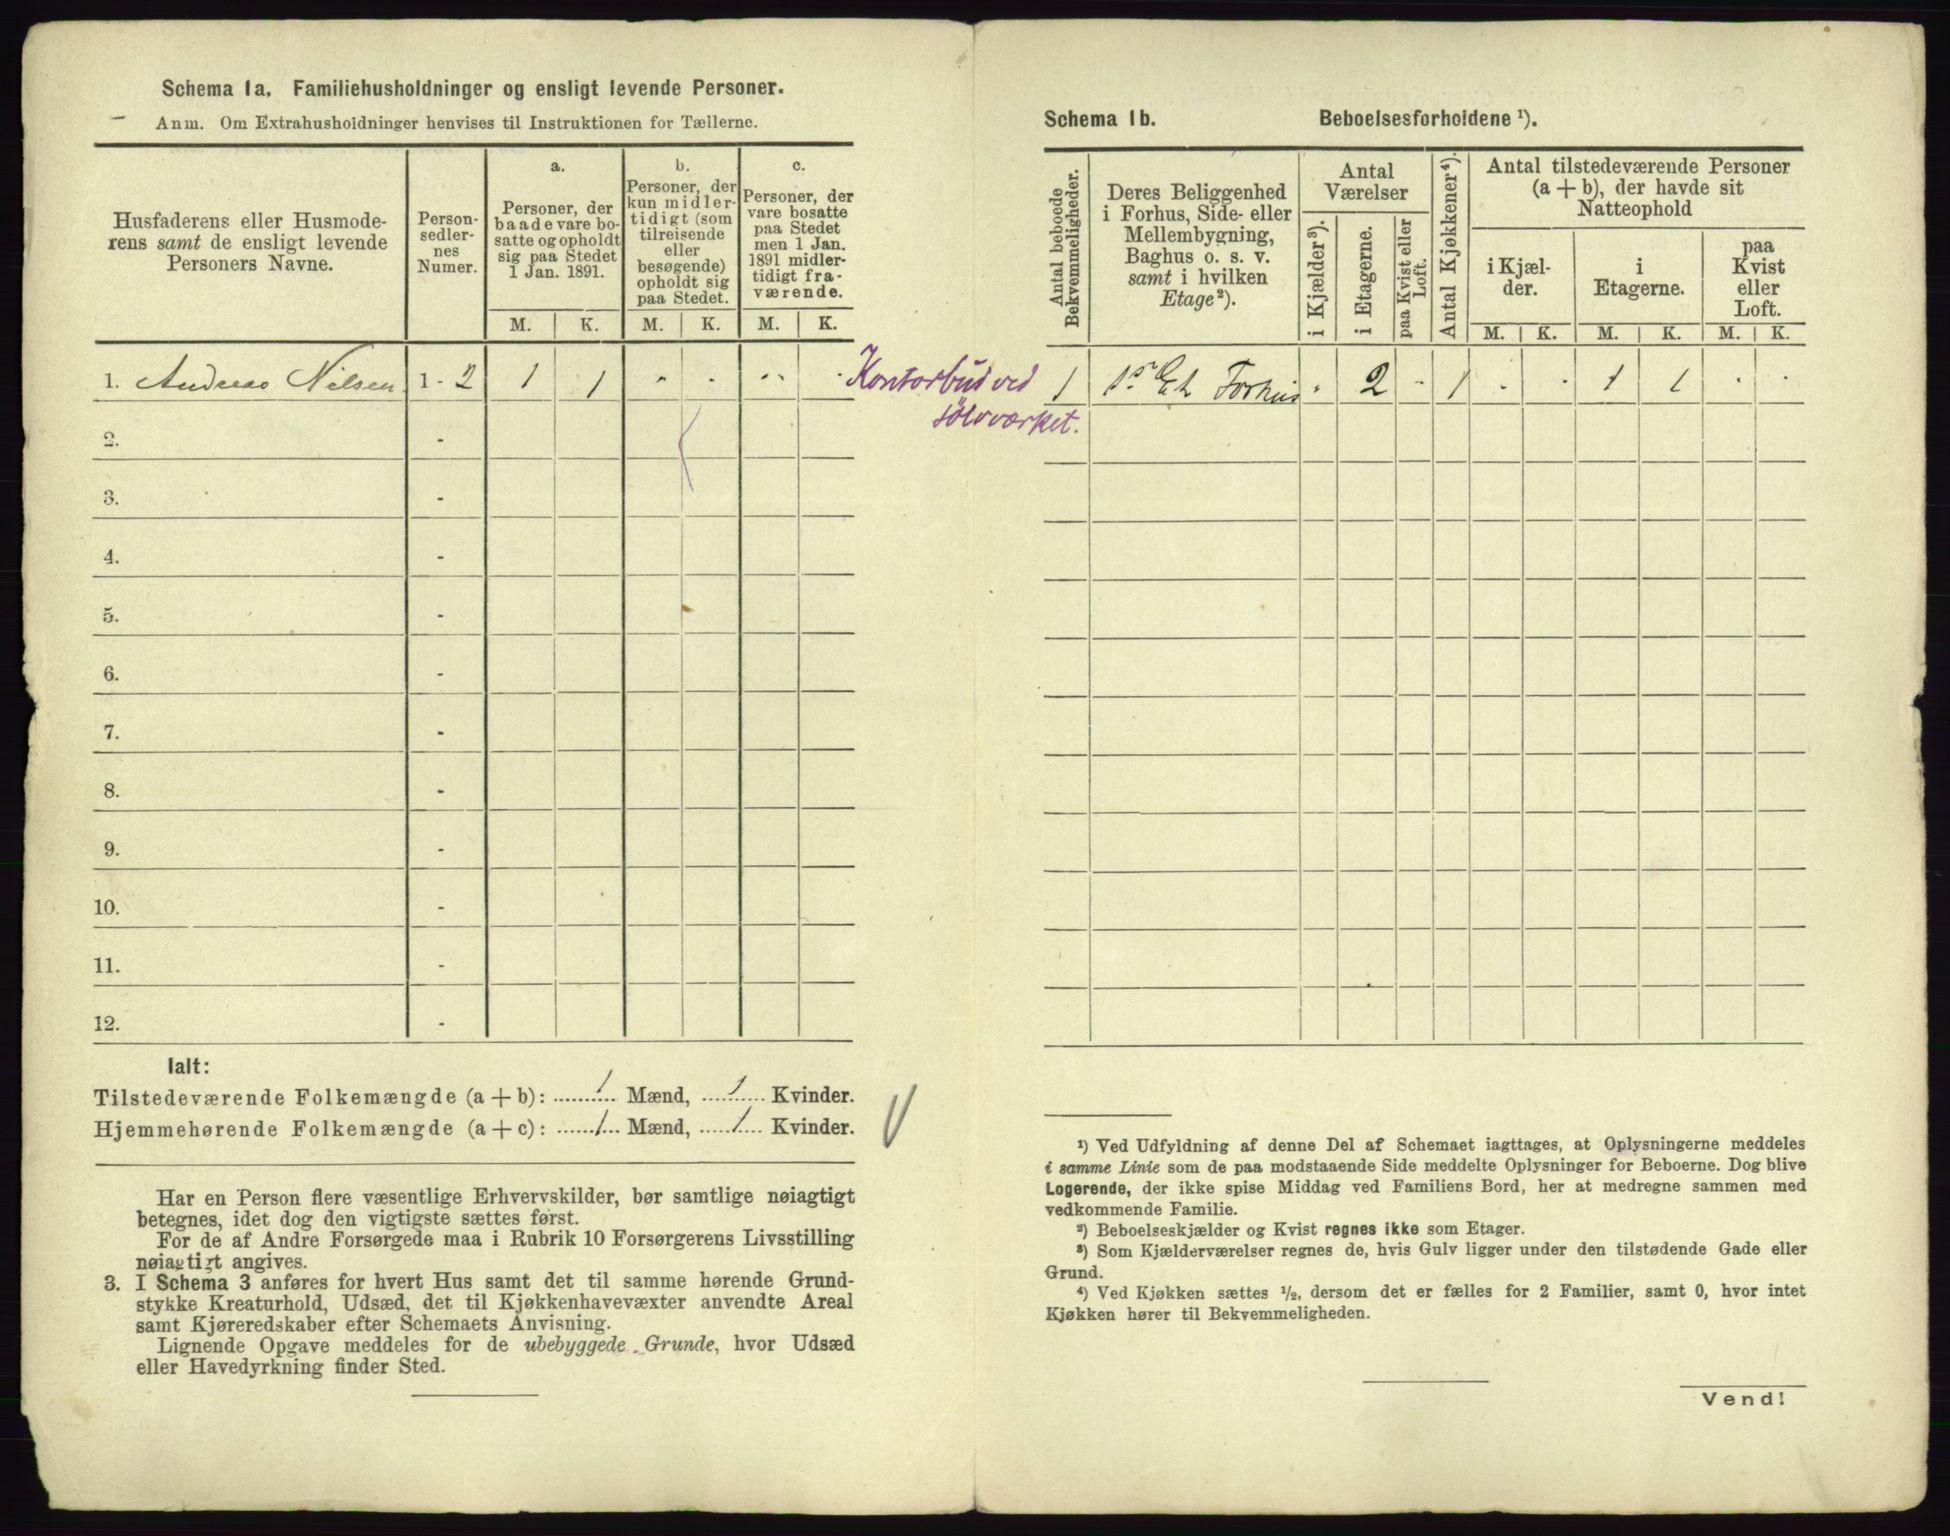 Schema 1a. Familiehusholdninger og ensligt levende Personer.
Anm. Om Extrahusholdninger henvises til Instruktionen for Tællerne.
Husfaderens eller Husmode-
rens samt de ensligt levende
Personers Navne.
Person-
sedler-
nes
Numer.
a.
Personer, der
baade vare bo-
satte og opholdt
sig paa Stedet
1 Jan. 1891.
M. K.
b.
Personer, der
kun midler-
tidigt (som
tilreisende
eller
besøgende)
opholdt sig
paa Stedet.
M. K.
c.
Personer, der
vare bosatte
paa Stedet
men 1 Jan.
1891 midler-
tidigt fra-
værende.
M. K.
1. Andreas Nilsen 1 - 2 1 1 " . " .
Kontorbud ved
sölvværket.
2. -
3. -
4. -
5. -
6. -
7. -
8. -
9. -
10. -
11. -
12. -
Ialt:
Tilstedeværende Folkemængde (a + b): 1 Mænd, 1 Kvinder.
Hjemmehørende Folkemængde (a + c): 1 Mænd, 1 Kvinder.
Har en Person flere væsentlige Erhvervskilder, bør samtlige nøiagtigt
betegnes, idet dog den vigtigste sættes først.
For de af Andre Forsørgede maa i Rubrik 10 Forsørgerens Livsstilling
nøiagtigt angives.
3. I Schema 3 anføres for hvert Hus samt det til samme hørende Grund-
stykke Kreaturhold, Udsæd, det til Kjøkkenhavevæxter anvendte Areal
samt Kjøreredskaber efter Schemaets Anvisning.
Lignende Opgave meddeles for de ubebyggede Grunde, hvor Udsæd
eller Havedyrkning finder Sted.
Schema 1b. Beboelsesforholdene ¹).
Antal beboede
Bekvemmeligheder.
Deres Beliggenhed
i Forhus, Side- eller
Mellembygning,
Baghus o. s. v.
samt i hvilken
Etage²).
Antal
Værelser
i Kjælder³).
i Etagerne.
paa Kvist eller
Loft.
Antal Kjøkkener⁴).
Antal tilstedeværende Personer
(a + b), der havde sit
Natteophold
i Kjæl-
der.
M. K.
i
Etagerne.
M. K.
paa
Kvist
eller
Loft.
M. K.
1 1ste Et Forhus " 2 - 1 . . 1 1 . .
¹) Ved Udfyldning af denne Del af Schemaet iagttages, at Oplysningerne meddeles
i samme Linie som de paa modstaaende Side meddelte Oplysninger for Beboerne. Dog blive
Logerende, der ikke spise Middag ved Familiens Bord, her at medregne sammen med
vedkommende Familie.
²) Beboelseskjælder og Kvist regnes ikke som Etager.
³) Som Kjælderværelser regnes de, hvis Gulv ligger under den tilstødende Gade eller
Grund.
⁴) Ved Kjøkken sættes ½, dersom det er fælles for 2 Familier, samt 0, hvor intet
Kjøkken hører til Bekvemmeligheden.
Vend!